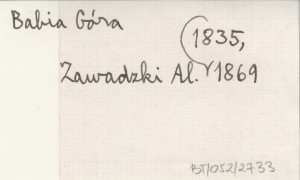 Babia Góra
1835,
Zawadzki Al. 1869
BT/052/2733